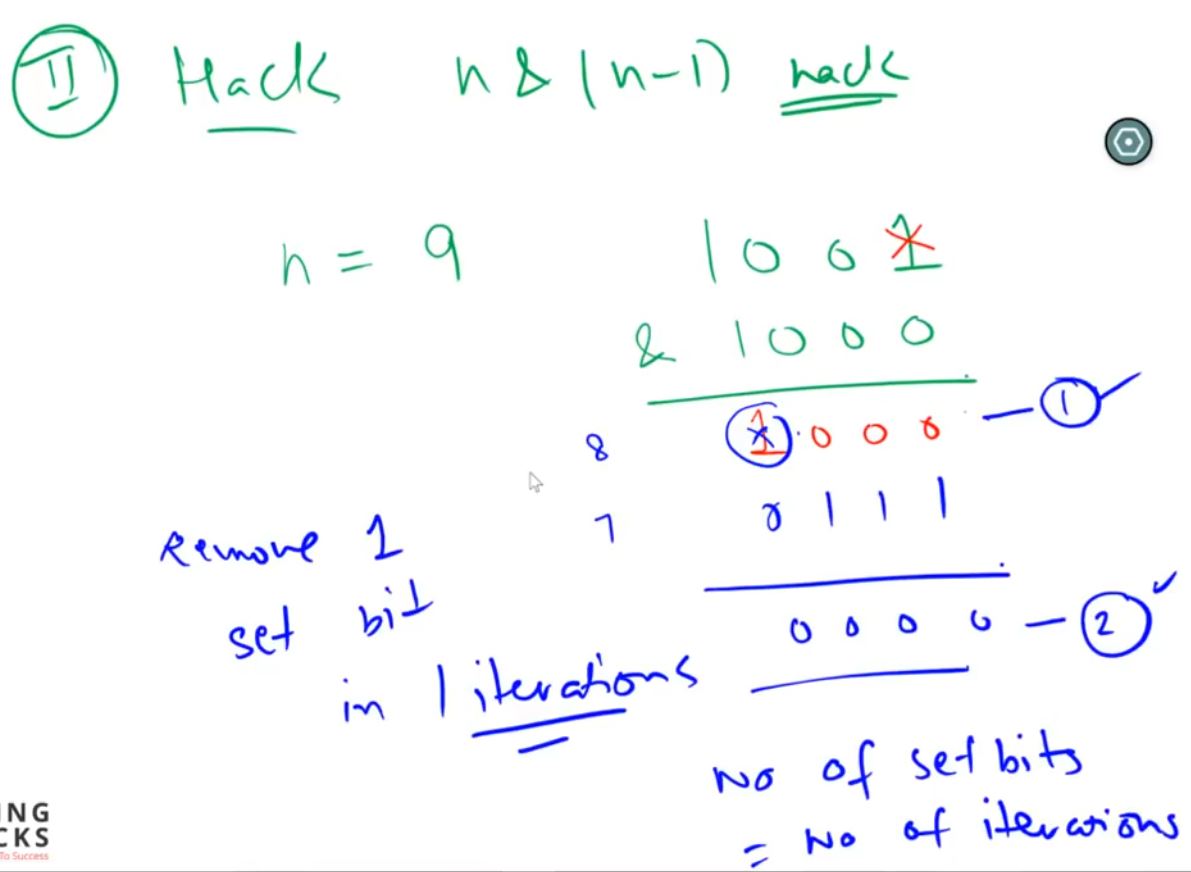 II Hack n & (n-1) hack
n = 9 1 0 0 1
& 1 0 0 0
8 1 0 0 0 — 1
7 0 1 1 1
0 0 0 0 — 2
Remove 1
set bit
in 1 iterations
No of set bits
= No of iterations
NG
CKS
To Success